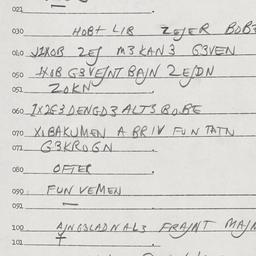 021
030 HOBT LIB ZEJER BOB3
040 ZEJ M3KAN3 G3VEN
050 HOB G3VEJNT BAJN ZEJDN
051 ZOKN
060 DENGD3 ALTS BOBE
070 BAKUMEN A BRIV FUN TATN
071 G3KROGN
080 OFTER
090 FUN VEMEN
091
100 FRAJNT MAJN
101